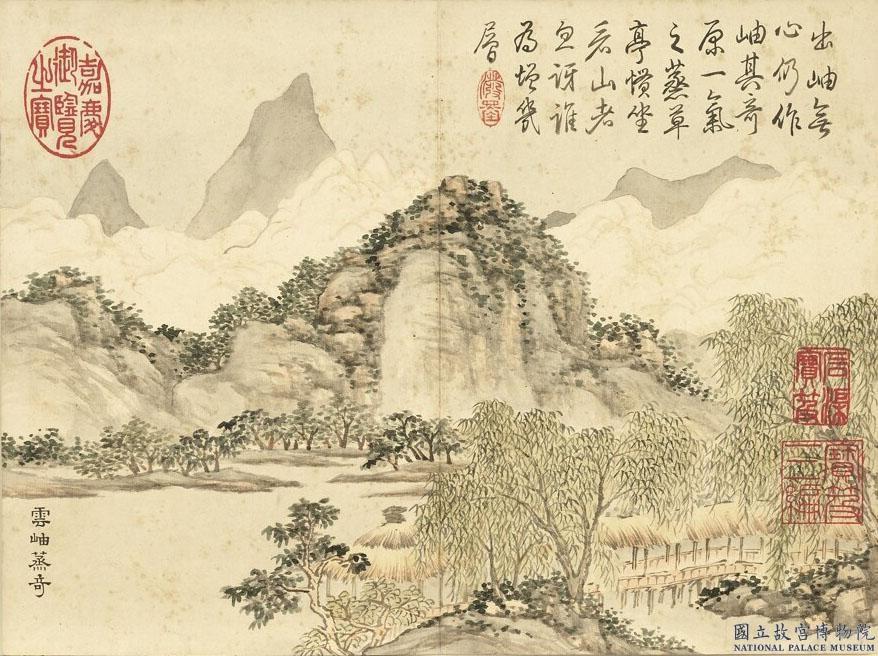 出岫無
心仍作
岫其奇
原一氣
之蒸草
亭慣坐
看山者
忽訝誰
為增幾
層
嘉慶
御覽
之寶
石渠
寶笈
寶笈
三編
雲岫蒸奇
國立故宮博物院
NATIONAL PALACE MUSEUM